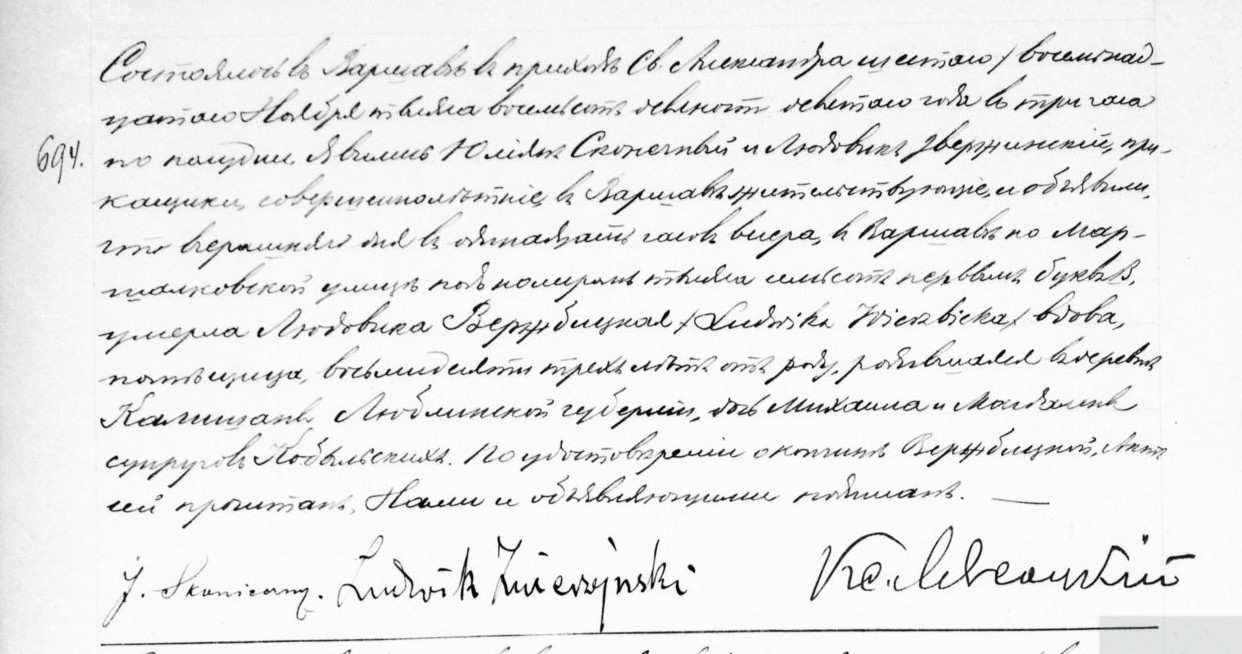 Состоялось въ Варшавѣ въ приходѣ Св. Александра шестаго / восемнад-
цатаго Ноября тысяча восемьсотъ девяностъ девятаго года въ три часа
694.
по полудни. Явились Юліянъ Сконечный и Людовикъ Звержинскій, при-
кащики, совершеннолѣтніе, въ Варшавѣ жительствующіе, и объявили,
что вчерашняго дня въ одинадцать часовъ вечера, въ Варшавѣ по Мар-
шалковской улицѣ подъ номеромъ тысяча семьсотъ первымъ буквы В,
умерла Людовика Вержбицкая /Ludwika Wierzbicka/ вдова,
помѣщица, восьмидесяти трехъ лѣтъ отъ роду, родившаяся въ деревнѣ
Калишанъ, Люблинской губерніи, дочь Михаила и Магдалены
супруговъ Кобыльскихъ. По удостовѣреніи о кончинѣ Вержбицкой, Актъ
сей прочитанъ, Нами и объявляющими подписанъ. —
J. Skonieczny. Ludwik Zwierzyński